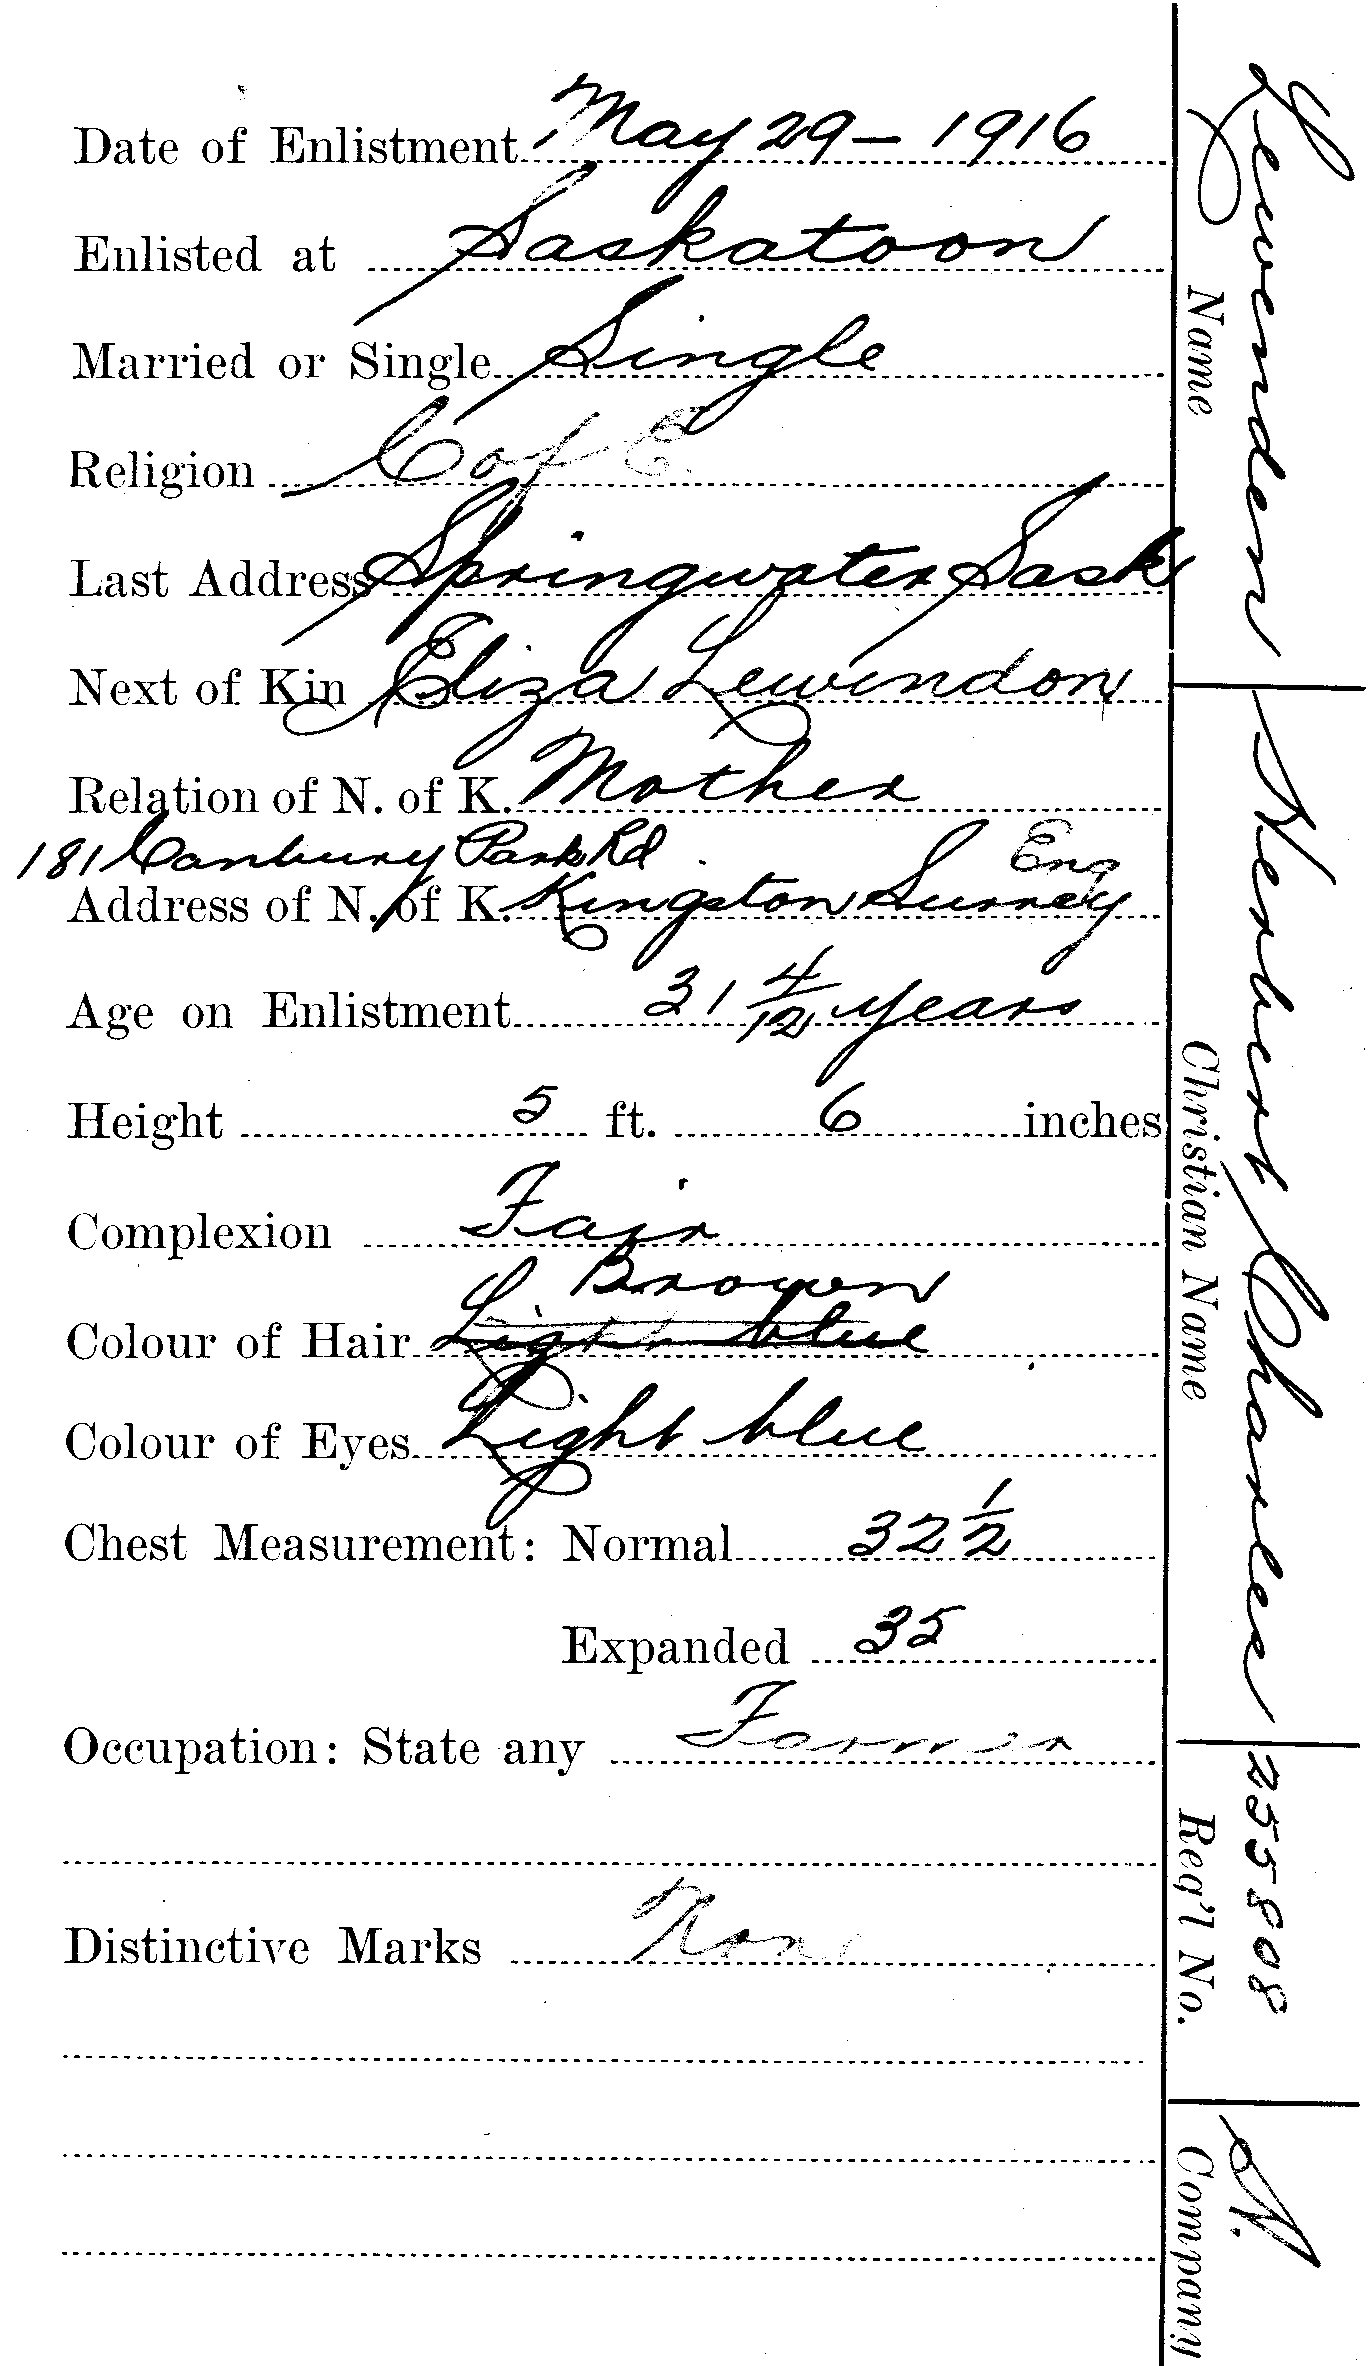 Date of Enlistment May 29 – 1916
Enlisted at Saskatoon
Married or Single Single
Religion C of E.
Last Address Springwater Sask
Next of Kin Eliza Lewindon
Relation of N. of K. Mother
181 Canbury Park Rd
Eng
Address of N. of K. Kingston Surrey
Age on Enlistment 31 4/12 years
Height 5 ft. 6 inches
Complexion Fair
Brown
Colour of Hair Light blue
Colour of Eyes Light blue
Chest Measurement: Normal 32 1/2
Expanded 35
Occupation: State any Farmer
Distinctive Marks None
Lewenden Herbert Charles 255808
Name Christian Name Reg'l No. Company